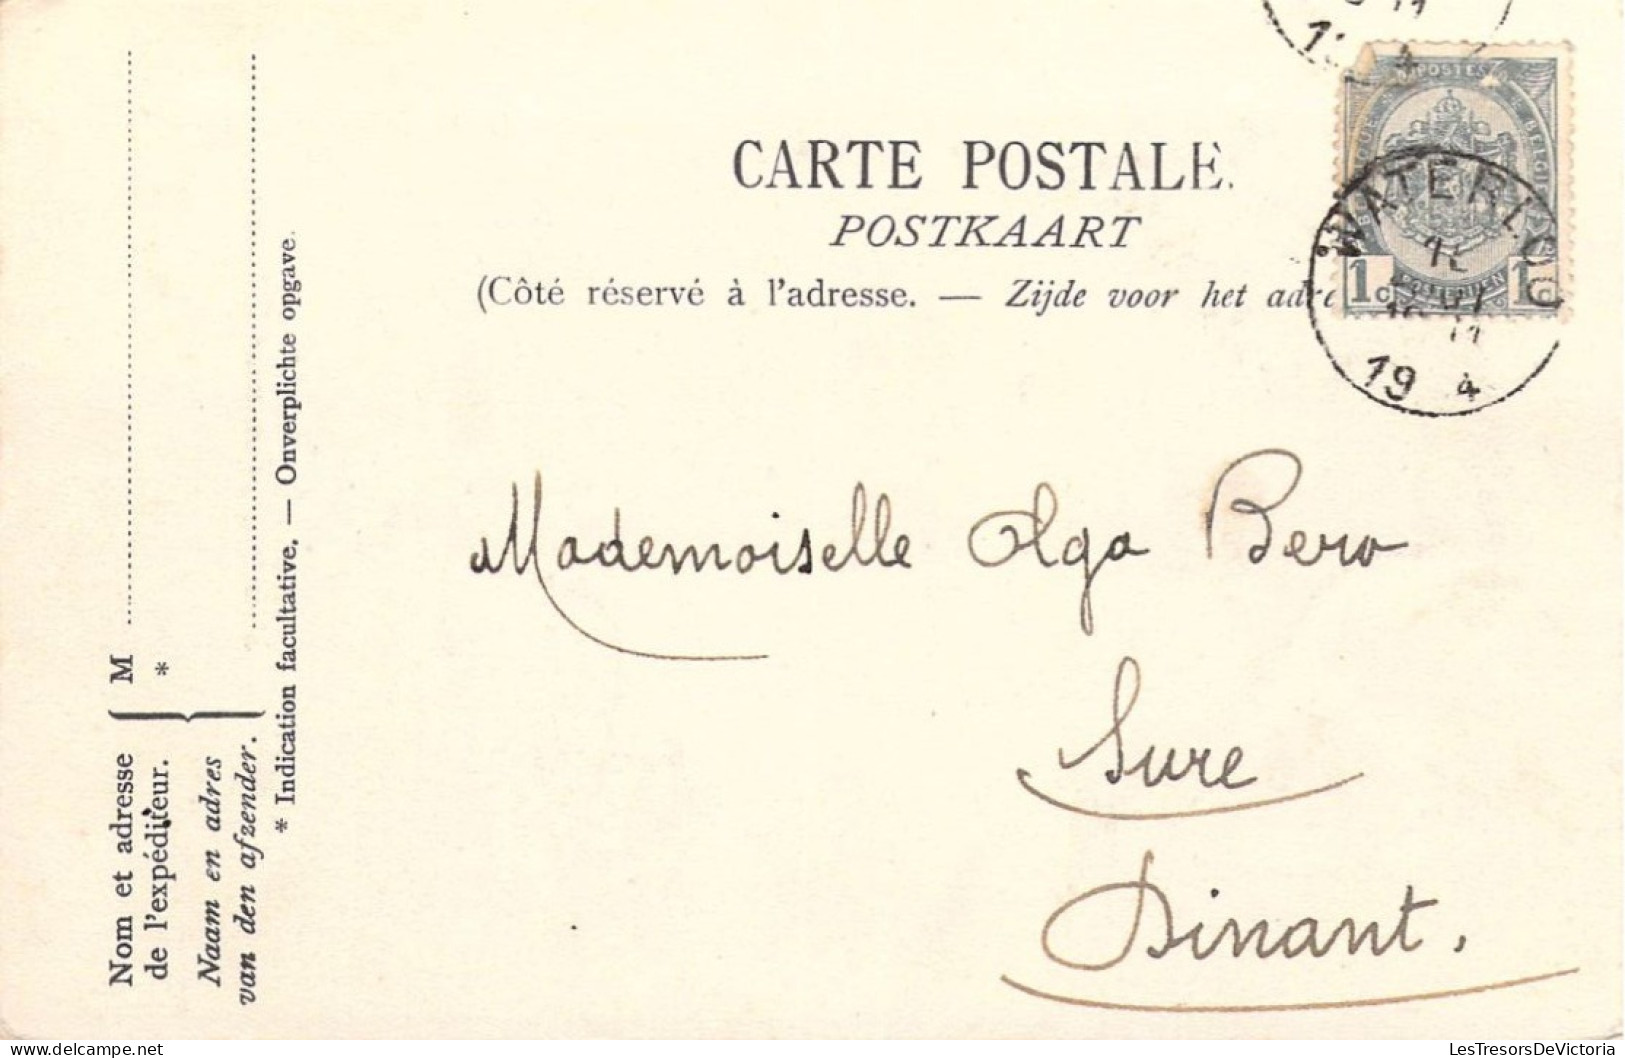 CARTE POSTALE.
POSTKAART
(Côté réservé à l'adresse. — Zijde voor het adre
POSTES
BELGIQUE
1c 1c
WATERLOO
19 4
Mademoiselle Olga Bero
Sure
Dinant.
Nom et adresse
de l'expéditeur.
M
*
Naam en adres
van den afzender.
* Indication facultative. — Onverplichte opgave.
LesTresorsDeVictoria